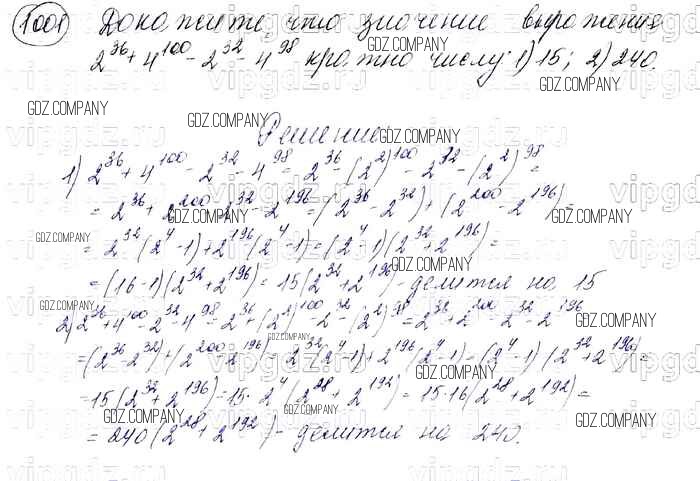 1001) Докажите, что значение выражения
2^36 + 4^100 - 2^32 - 4^98 кратно числу: 1) 15; 2) 240.
Решение:
1) 2^36 + 4^100 - 2^32 - 4^98 = 2^36 - (2^2)^100 - 2^32 - (2^2)^98 =
= 2^36 + 2^200 - 2^32 - 2^196 = (2^36 - 2^32) + (2^200 - 2^196) =
= 2^32 (2^4 - 1) + 2^196 (2^4 - 1) = (2^4 - 1)(2^32 + 2^196) =
= (16 - 1)(2^32 + 2^196) = 15(2^32 + 2^196) - делится на 15
2) 2^36 + 4^100 - 2^32 - 4^98 = 2^36 + (2^2)^100 - 2^32 - (2^2)^98 = 2^36 + 2^200 - 2^32 - 2^196
= (2^36 - 2^32) + (2^200 - 2^196) = 2^32 (2^4 - 1) + 2^196 (2^4 - 1) = (2^4 - 1)(2^32 + 2^196) =
= 15(2^32 + 2^196) = 15 · 2^4 (2^28 + 2^192) = 15 · 16(2^28 + 2^192) =
= 240(2^28 + 2^192) - делится на 240.